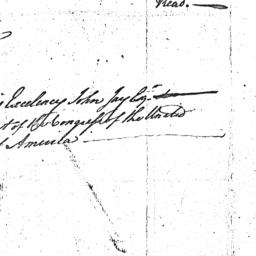 Read.
Excelency John Jay Esqr.
t of the Congress of the United
America